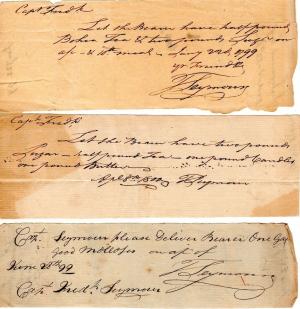 Capt. Fred k
Let the Bearer have half pound
Bohea Tea & two pounds Sugar on
ap - & 10th meal - Jany 22d, 1799
yr Friend
T Seymour
Capt. Fred k
Let the Bearer have two pounds
Sugar - half pound Tea - one pound Candles
one pound Butter
Apl 8th 1800 T Seymour
Cpt. Seymour please Deliver Bearer One Gal
good Molloses on ap of
June 28th 99 T Seymour
Cpt. Fredk Seymour